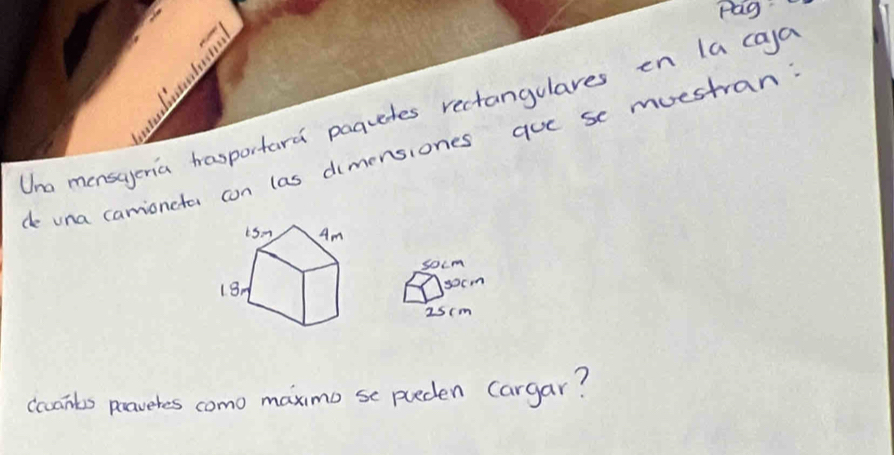 Pág
Una mensajería trasportará paquetes rectangulares en la caja
de una camioneta con las dimensiones que se muestran:
1.5m 4m
1.8m
50cm
50cm
25cm
¿cuántos paquetes como máximo se pueden cargar?